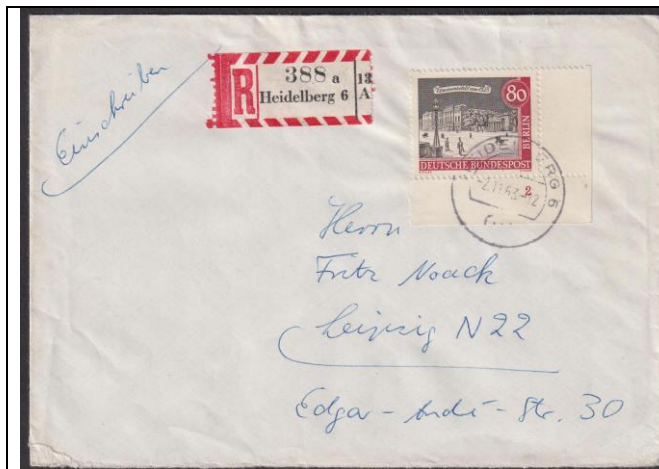 Einschreiben
R
388 a
Heidelberg 6
13
A
80
BERLIN
DEUTSCHE BUNDESPOST
2
HEIDELBERG 6
-2.11.63-12
Herrn
Fritz Noack
Leipzig N22
Edgar-André-Str. 30